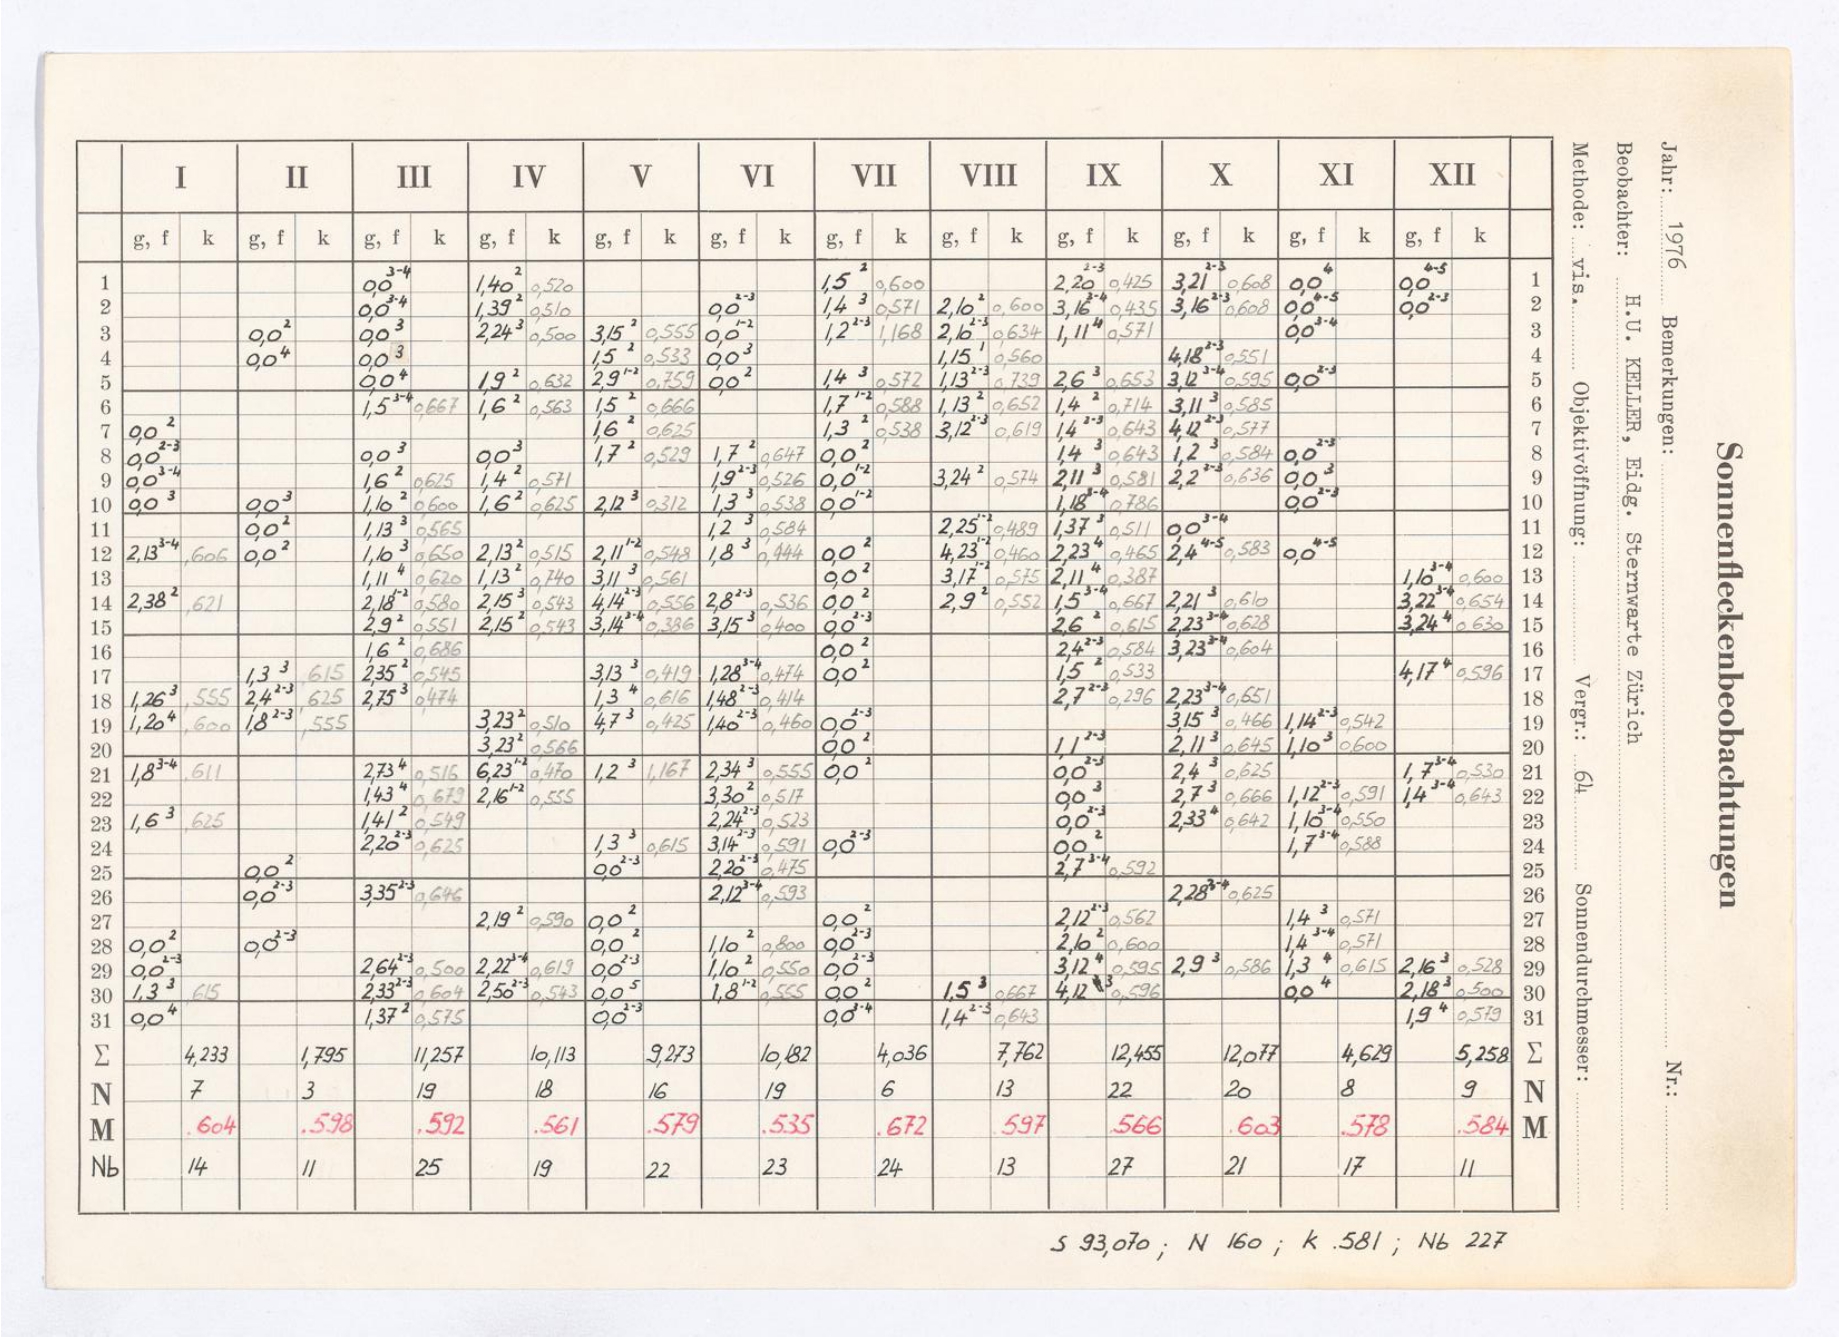 I II III IV V VI VII VIII IX X XI XII
g, f k g, f k g, f k g, f k g, f k g, f k g, f k g, f k g, f k g, f k g, f k g, f k
1 0,0 3-4 1,40 2 0,520 1,5 2 0,600 2,20 2-3 0,425 3,21 2-3 0,608 0,0 4 0,0 4-5 1
2 0,0 3-4 1,39 2 0,510 0,0 2-3 1,4 3 0,571 2,10 2 0,600 3,16 2-4 0,435 3,16 2-3 0,608 0,0 4-5 0,0 2-3 2
3 0,0 2 0,0 3 2,24 3 0,500 3,15 2 0,555 0,0 1-2 1,2 2-3 1,168 2,10 2-3 0,634 1,11 4 0,571 0,0 3-4 3
4 0,0 4 0,0 3 1,5 2 0,533 0,0 3 1,15 1 0,560 4,18 2-3 0,551 4
5 0,0 4 1,9 2 0,632 2,9 1-2 0,759 0,0 2 1,4 3 0,572 1,13 2-3 0,739 2,6 3 0,653 3,12 3-4 0,595 0,0 2-3 5
6 1,5 3-4 0,667 1,6 2 0,563 1,5 2 0,666 1,7 1-2 0,588 1,13 2 0,652 1,4 2 0,714 3,11 3 0,585 6
7 0,0 2 1,6 2 0,625 1,3 2 0,538 3,12 2-3 0,619 1,4 2-3 0,643 4,12 2-3 0,577 7
8 0,0 2-3 0,0 3 0,0 3 1,7 2 0,529 1,7 2 0,647 0,0 2 1,4 3 0,643 1,2 3 0,584 0,0 2-3 8
9 0,0 3-4 1,6 2 0,625 1,4 2 0,571 1,9 2-3 0,526 0,0 1-2 3,24 2 0,574 2,11 3 0,581 2,2 2-3 0,636 0,0 3 9
10 0,0 3 0,0 3 1,10 2 0,600 1,6 2 0,625 2,12 3 0,312 1,3 3 0,538 0,0 1-2 1,18 3-4 0,786 0,0 2-3 10
11 0,0 2 1,13 3 0,565 1,2 3 0,584 2,25 1-2 0,489 1,37 3 0,511 0,0 3-4 11
12 2,13 3-4 ,606 0,0 2 1,10 3 0,650 2,13 2 0,515 2,11 1-2 0,548 1,8 3 0,444 0,0 2 4,23 1-2 0,460 2,23 4 0,465 2,4 4-5 0,583 0,0 4-5 12
13 1,11 4 0,620 1,13 2 0,740 3,11 3 0,561 0,0 2 3,17 1-2 0,575 2,11 4 0,387 1,10 3-4 0,600 13
14 2,38 2 ,621 2,18 1-2 0,580 2,15 3 0,543 4,14 2-3 0,556 2,8 2-3 0,536 0,0 2 2,9 2 0,552 1,5 3-4 0,667 2,21 3 0,610 3,22 3-4 0,654 14
15 2,9 2 0,551 2,15 2 0,543 3,14 3-4 0,386 3,15 3 0,400 0,0 2-3 2,6 2 0,615 2,23 3-4 0,628 3,24 4 0,630 15
16 1,6 2 0,686 0,0 2 2,4 2-3 0,584 3,23 3-4 0,604 16
17 1,3 3 ,615 2,35 2 0,545 3,13 3 0,419 1,28 3-4 0,474 0,0 2 1,5 2 0,533 4,17 4 0,596 17
18 1,26 3 ,555 2,4 2-3 ,625 2,75 3 0,474 1,3 4 0,616 1,48 2-3 0,414 2,7 2-3 0,296 2,23 3-4 0,651 18
19 1,20 4 ,600 1,8 2-3 ,555 3,23 2 0,510 4,7 3 0,425 1,40 2-3 0,460 0,0 2-3 3,15 3 0,466 1,14 2-3 0,542 19
20 3,23 2 0,566 0,0 2 1,1 2-3 2,11 3 0,645 1,10 3 0,600 20
21 1,8 3-4 ,611 2,73 4 0,516 6,23 1-2 0,470 1,2 3 1,167 2,34 3 0,555 0,0 2 0,0 2-3 2,4 3 0,625 1,7 3-4 0,530 21
22 1,43 4 0,679 2,16 1-2 0,555 3,30 2 0,517 0,0 3 2,7 3 0,666 1,12 2-3 0,591 1,4 3-4 0,643 22
23 1,6 3 ,625 1,41 2 0,549 2,24 2-3 0,523 0,0 2-3 2,33 4 0,642 1,10 3-4 0,550 23
24 2,20 2-3 0,625 1,3 3 0,615 3,14 2-3 0,591 0,0 2-3 0,0 2 1,7 3-4 0,588 24
25 0,0 2 0,0 2-3 2,20 2-3 0,475 2,7 3-4 0,592 25
26 0,0 2-3 3,35 2-3 0,646 2,12 3-4 0,593 2,28 3-4 0,625 26
27 2,19 2 0,590 0,0 2 0,0 2 2,12 2-3 0,562 1,4 3 0,571 27
28 0,0 2 0,0 2-3 0,0 2 1,10 2 0,800 0,0 2-3 2,10 2 0,600 1,4 3-4 0,571 28
29 0,0 2-3 2,64 2-3 0,500 2,22 3-4 0,619 0,0 2-3 1,10 2 0,550 0,0 2-3 3,12 4 0,595 2,9 3 0,586 1,3 4 0,615 2,16 3 0,528 29
30 1,3 3 ,615 2,33 2-3 0,604 2,50 2-3 0,543 0,0 5 1,8 1-2 0,555 0,0 2 1,5 3 0,667 4,12 3 0,596 0,0 4 2,18 3 0,500 30
31 0,0 4 1,37 2 0,575 0,0 2-3 0,0 3-4 1,4 2-3 0,643 1,9 4 0,579 31
Σ 4,233 1,795 11,257 10,113 9,273 10,182 4,036 7,762 12,455 12,077 4,629 5,258 Σ
N 7 3 19 18 16 19 6 13 22 20 8 9 N
M .604 .598 .592 .561 .579 .535 .672 .597 .566 .603 .578 .584 M
Nb 14 11 25 19 22 23 24 13 27 21 17 11
S 93,070 ; N 160 ; k .581 ; Nb 227
Sonnenfleckenbeobachtungen
Jahr: 1976 Bemerkungen: Nr.:
Beobachter: H.U. KELLER, Eidg. Sternwarte Zürich
Methode: vis. Objektivöffnung: Vergr.: 64 Sonnendurchmesser: